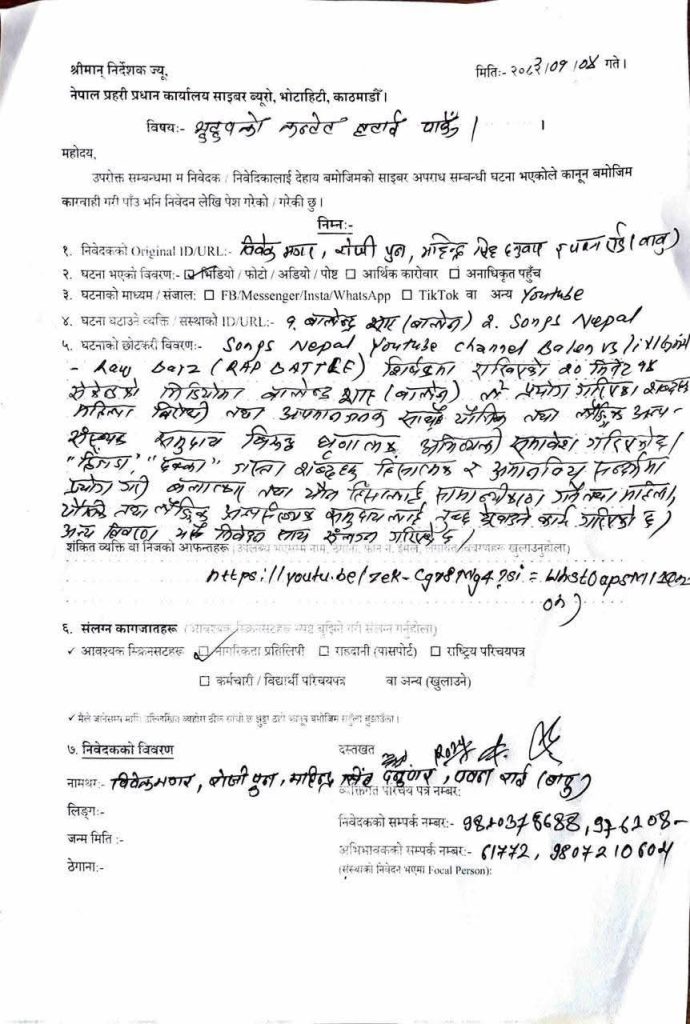 श्रीमान् निर्देशक ज्यू,
मितिः- २०८२।०९।०४ गते।
नेपाल प्रहरी प्रधान कार्यालय साइबर ब्यूरो, भोटाहिटी, काठमाडौं।
विषयः- कन्टेन्ट हटाई पाऊँ। ।
महोदय,
उपरोक्त सम्बन्धमा म निवेदक / निवेदिकालाई देहाय बमोजिमको साइबर अपराध सम्बन्धी घटना भएकोले कानून बमोजिम
कारवाही गरी पाउं भनि निवेदन लेखि पेश गरेको / गरेकी छु।
निम्नः-
१. निवेदकको Original ID/URL:- विवेक मगर, रोजी पुन, महिन्द्र सिंह (बाबु)
२. घटना भएको विवरणः- ☑ भिडियो / फोटो / अडियो / पोष्ट ☐ आर्थिक कारोवार ☐ अनाधिकृत पहुँच
३. घटनाको माध्यम / संजालः ☐ FB/Messenger/Insta/WhatsApp ☐ TikTok वा अन्य Youtube
४. घटना घटाउने व्यक्ति / सस्थाको ID/URL:- १. बालेन्द्र शाह (बालेन) २. Songs Nepal
५. घटनाको छोटकरी विवरणः- Songs Nepal Youtube Channel Balen vs
- Raw Barz (RAP BATTLE) शिर्षकमा राखिएको २० मिनेट १४
सेकेन्डको भिडियोमा बालेन्द्र शाह (बालेन) ले प्रयोग गरिएका शब्दहरु
महिला विरोधी तथा अपमानजनक साथै यौनिक तथा लैङ्गिक अल्प-
संख्यक समुदाय विरुद्ध घृणात्मक अभिव्यक्ती समावेश गरिएकोछ।
"हिजडा", "छक्का" जस्ता शब्दहरु हिंसात्मक र अमानविय सन्दर्भमा
प्रयोग गरी बलात्कार तथा यौन हिंसालाई सामान्यीकरण गर्ने तथा महिला,
यौनिक तथा लैङ्गिक अल्पसंख्यक समुदायलाई तुच्छ देखाउने कार्य गरिएको छ।
अन्य विवरण यसै निवेदन साथ संलग्न गरिएको छ।
शंकित व्यक्ति वा निजको आफन्तहरू (उपलब्ध भएसम्म नाम, ठेगाना, फोन नं, ईमेल, लगायत विवरणहरु खुलाउनुहोला)
६. संलग्न कागजातहरू (आवश्यक स्क्रिनसटहरू स्पष्ट बुझिने गरी संलग्न गर्नुहोला)
✓ आवश्यक स्क्रिनसटहरू ☑ नागरिकता प्रतिलिपी ☐ राहदानी (पासपोर्ट) ☐ राष्ट्रिय परिचयपत्र
☐ कर्मचारी / विद्यार्थी परिचयपत्र वा अन्य (खुलाउने)
✓ मैले जानेसम्म माथि उल्लिखित व्यहोरा ठीक साँचो छ झुठ्ठा ठहरे कानून बमोजिम सहुँला बुझाउँला।
७. निवेदकको विवरण
दस्तखत
नामथरः- विवेक मगर, रोजी पुन, महिन्द्र सिंह (बाबु)
व्यक्तिगत परिचय पत्र नम्बरः
लिङ्गः-
निवेदकको सम्पर्क नम्बरः- 9820378688, 976208-
जन्म मिति :-
अभिभावकको सम्पर्क नम्बरः- 61772, 9807210604
ठेगानाः-
(संस्थाको निवेदन भएमा Focal Person):